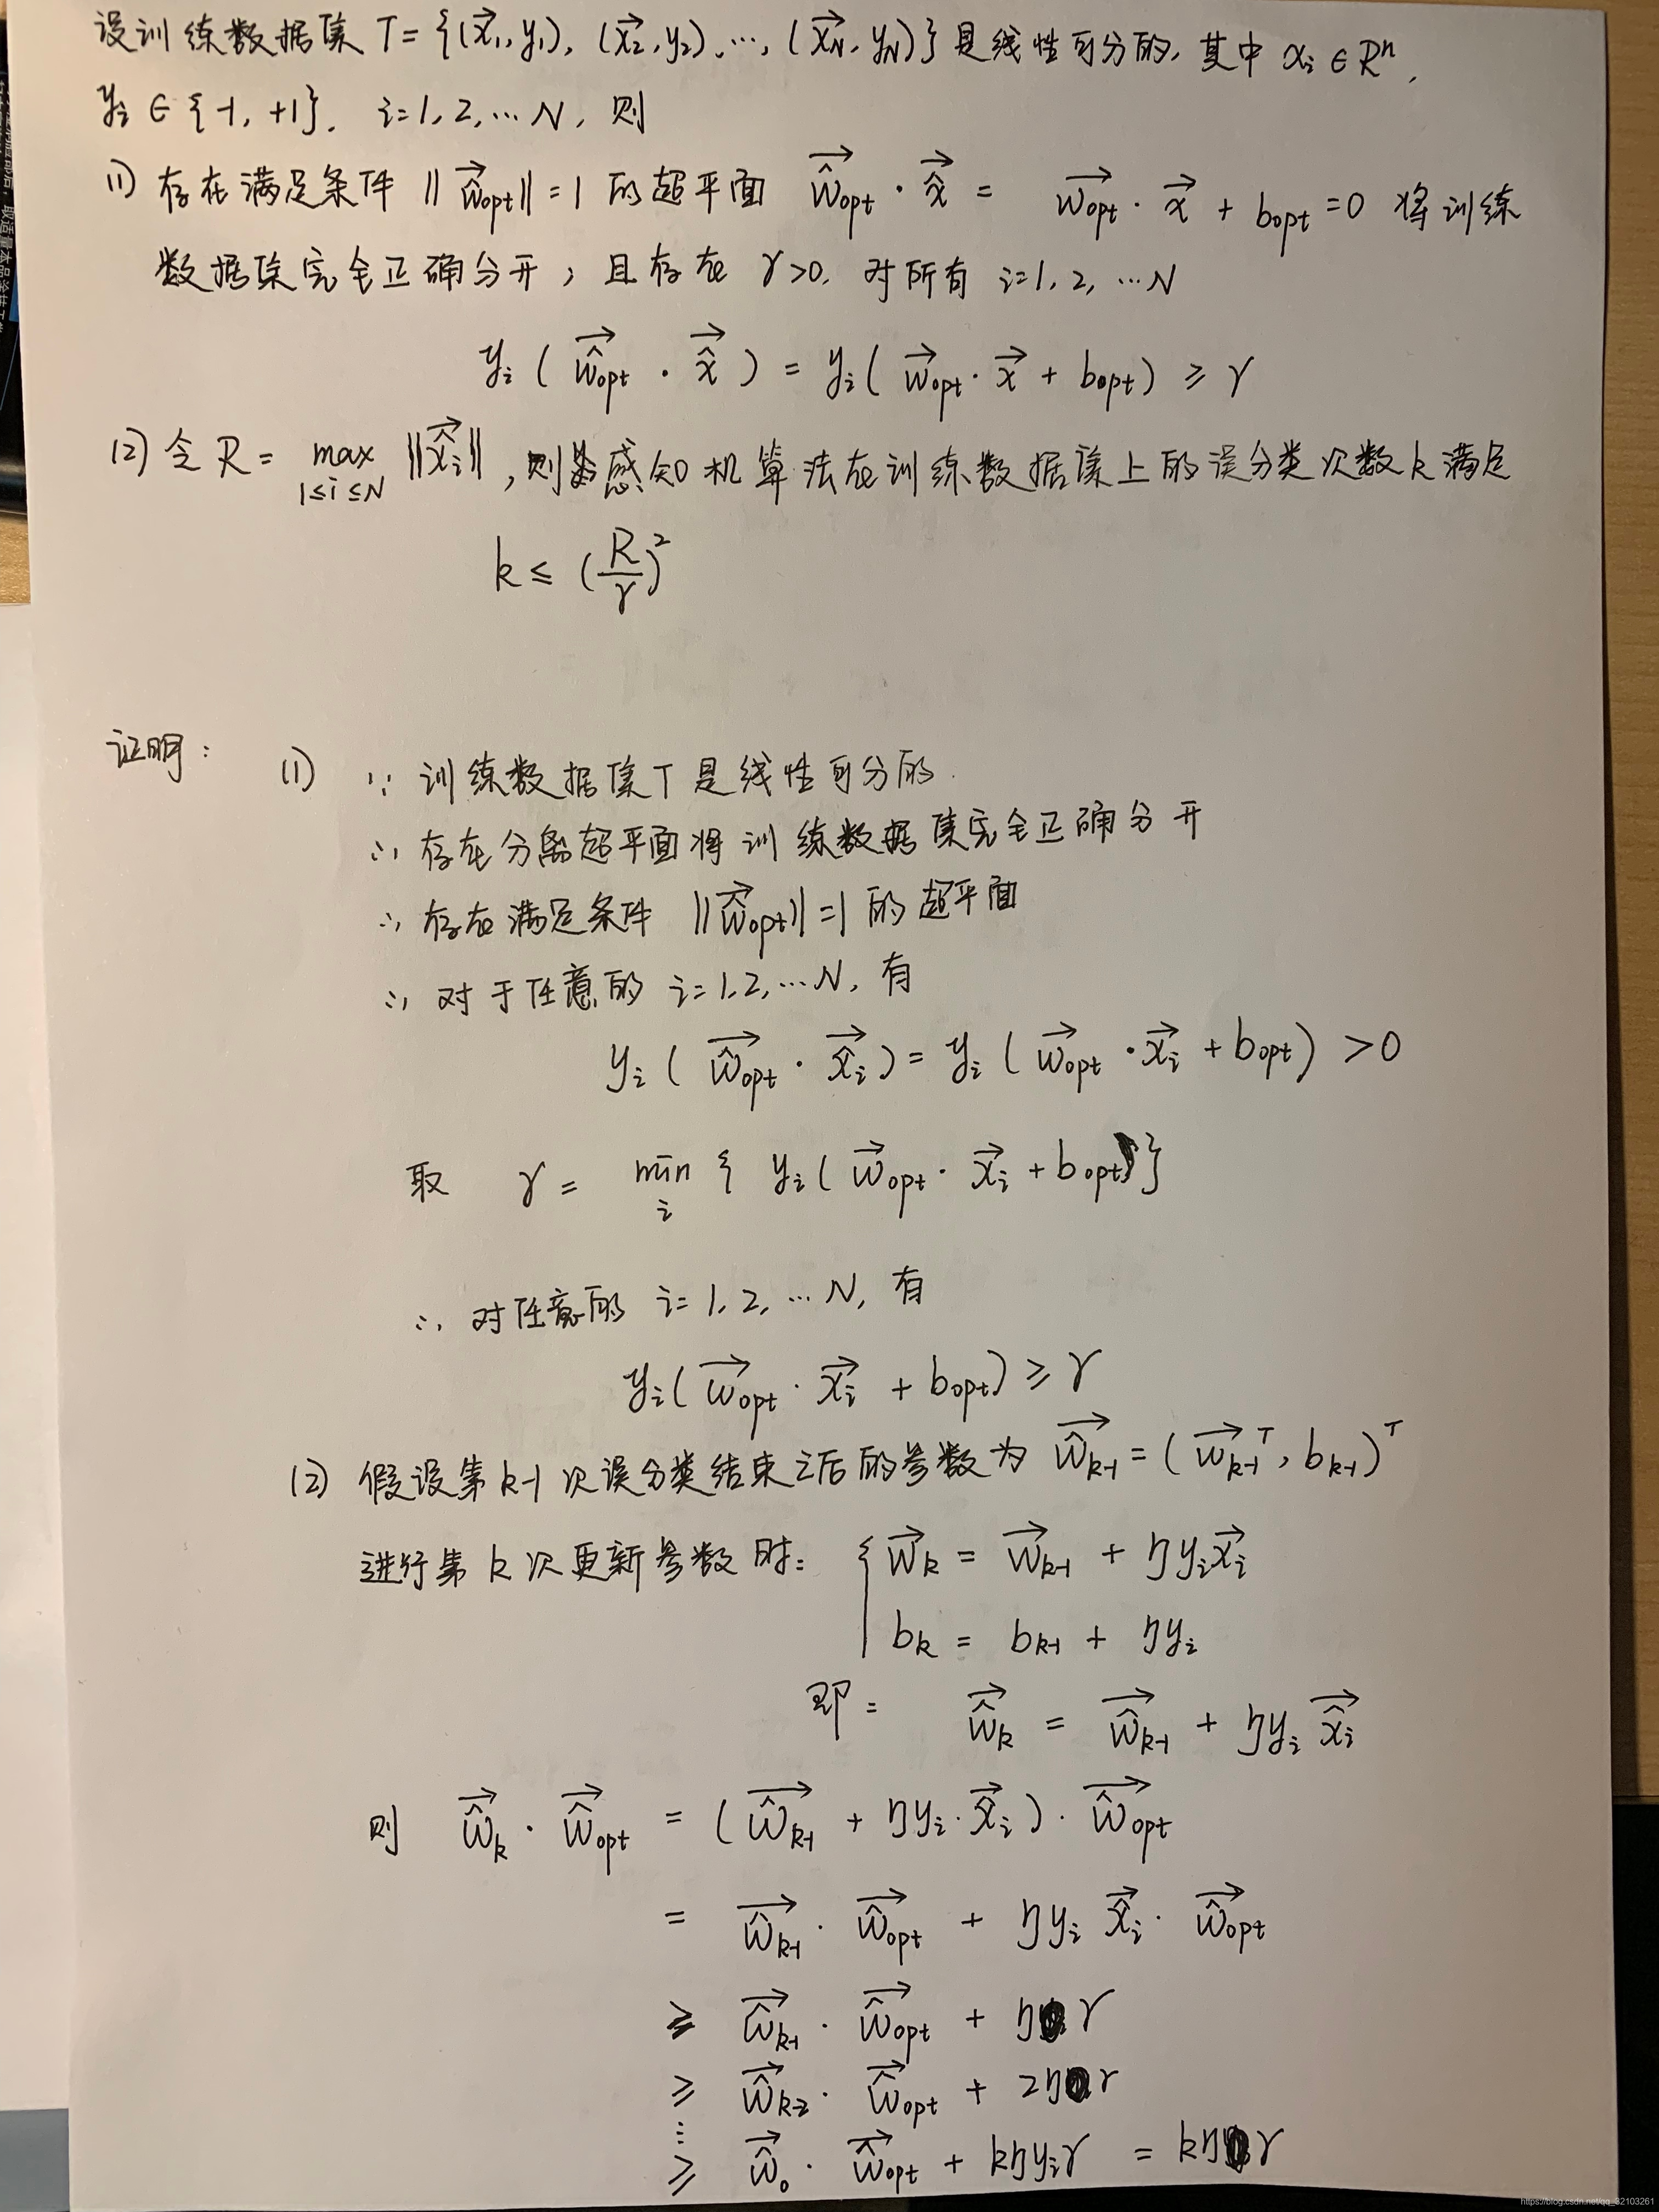 设训练数据集 T = {(x⃗₁, y₁), (x⃗₂, y₂), …, (x⃗_N, y_N)} 是线性可分的, 其中 x_i ∈ Rⁿ,
y_i ∈ {-1, +1}, i=1, 2, … N, 则
(1) 存在满足条件 ||ŵ⃗_opt|| = 1 的超平面 ŵ⃗_opt · x̂⃗ = w⃗_opt · x⃗ + b_opt = 0 将训练
数据集完全正确分开; 且存在 γ>0, 对所有 i=1, 2, … N
y_i ( ŵ⃗_opt · x̂⃗ ) = y_i ( w⃗_opt · x⃗ + b_opt ) ≥ γ
(2) 令 R = max_{1≤i≤N} ||x̂⃗_i||, 则感知机算法在训练数据集上的误分类次数 k 满足
k ≤ (R/γ)²
证明: (1) ∵ 训练数据集 T 是线性可分的
∴ 存在分离超平面将训练数据集完全正确分开
∴ 存在满足条件 ||ŵ⃗_opt|| = 1 的超平面
∴ 对于任意的 i=1, 2, … N, 有
y_i ( ŵ⃗_opt · x̂⃗_i ) = y_i ( w⃗_opt · x⃗_i + b_opt ) > 0
取 γ = min_i { y_i ( w⃗_opt · x⃗_i + b_opt ) }
∴ 对任意的 i=1, 2, … N, 有
y_i ( w⃗_opt · x⃗_i + b_opt ) ≥ γ
(2) 假设第 k-1 次误分类结束之后的参数为 ŵ⃗_{k-1} = ( w⃗_{k-1}^T, b_{k-1} )^T
进行第 k 次更新参数时: { w⃗_k = w⃗_{k-1} + η y_i x⃗_i
b_k = b_{k-1} + η y_i
即: ŵ⃗_k = ŵ⃗_{k-1} + η y_i x̂⃗_i
则 ŵ⃗_k · ŵ⃗_opt = ( ŵ⃗_{k-1} + η y_i · x̂⃗_i ) · ŵ⃗_opt
= ŵ⃗_{k-1} · ŵ⃗_opt + η y_i x̂⃗_i · ŵ⃗_opt
≥ ŵ⃗_{k-1} · ŵ⃗_opt + η γ
≥ ŵ⃗_{k-2} · ŵ⃗_opt + 2 η γ
⋮
≥ ŵ⃗_0 · ŵ⃗_opt + k η y_i γ = k η γ
https://blog.csdn.net/qq_32103261